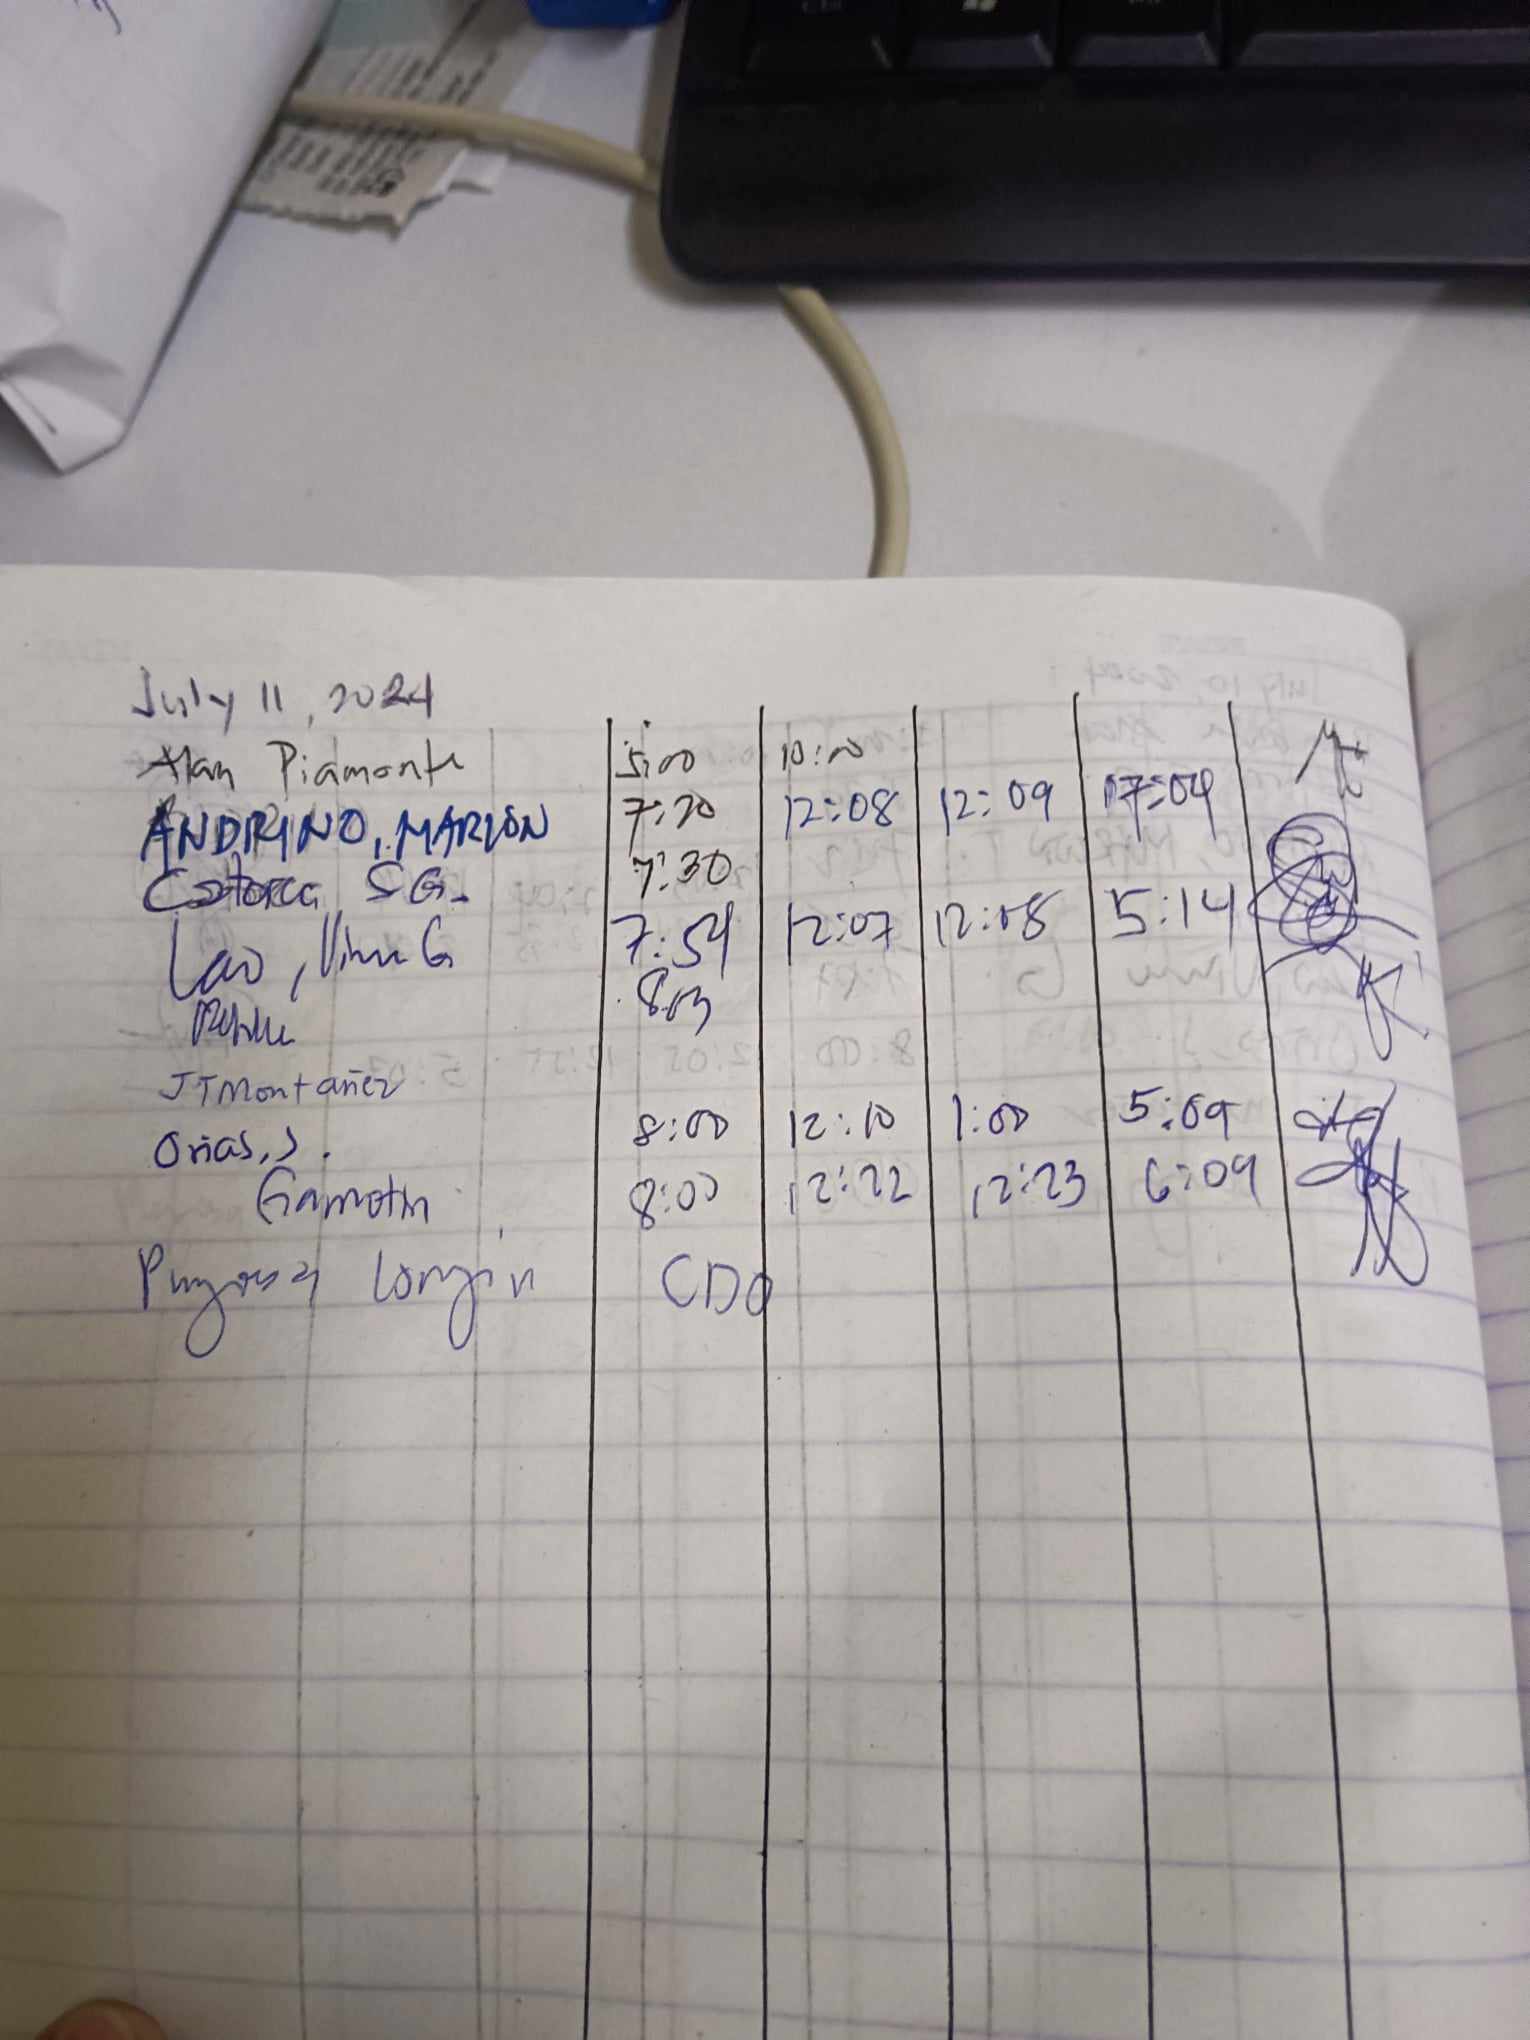 July 11, 2024
Alan Piamonte 5:00 10:00
ANDRINO, MARLON 7:20 12:08 12:09 17:04
S G. 7:30
Lao, G 7:54 12:07 12:08 5:14
8:03
JTMontañez
Orias, J. 8:00 12:10 1:00 5:09
Gamotin 8:00 12:22 12:23 6:09
Longin CDO